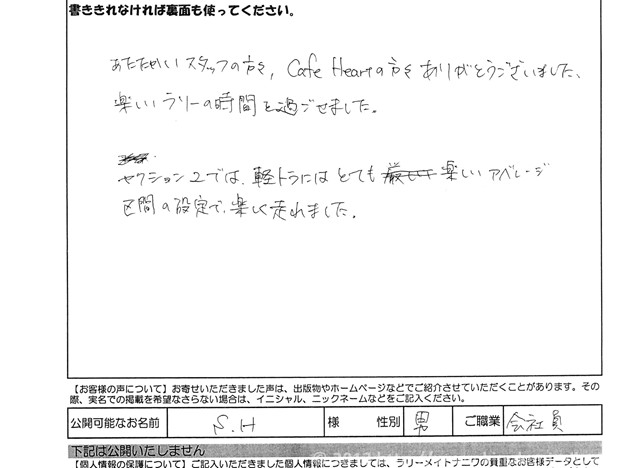 書ききれなければ裏面も使ってください。
あたたかいスタッフの方々, Cafe Heartの方々 ありがとうございました、
楽しいラリーの時間を過ごせました。
セクション2では、軽トラにはとても 楽しいアベレージ
区間の設定で、楽しく走れました。
【お客様の声について】お寄せいただきました声は、出版物やホームページなどでご紹介させていただくことがあります。その
際、実名での掲載を希望なさらない場合は、イニシャル、ニックネームなどをご記入ください。
公開可能なお名前 S.H 様 性別 男 ご職業 会社員
下記は公開いたしません
【個人情報の保護について】ご記入いただきました個人情報につきましては、ラリーメイトナニワの貴重なお客様データとして